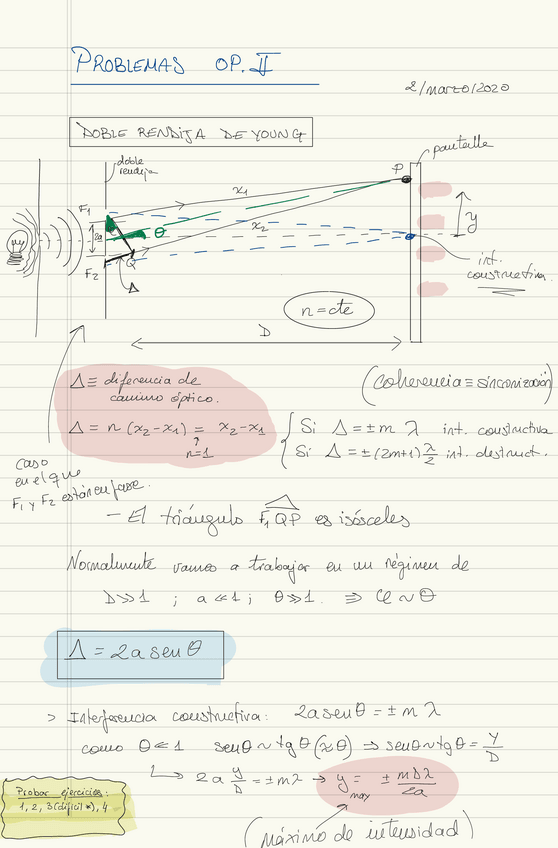 PROBLEMAS OP. II
2/marzo/2020
DOBLE RENDIJA DE YOUNG
doble
rendija
pantalla
P
F₁
x₁
θ
2a
x₂
y
F₂
Q
Δ
int.
constructiva
n = cte
D
Δ ≡ diferencia de
camino óptico.
(coherencia ≡ sincronización)
Δ = n (x₂ - x₁) = x₂ - x₁
n=1
{ Si Δ = ± m λ int. constructiva
Si Δ = ± (2m+1) λ/2 int. destruct.
caso
en el que
F₁ y F₂ están en fase.
- El triángulo F₁QP es isósceles
Normalmente vamos a trabajar en un régimen de
D>>1 ; a<<1 ; θ>>1. ≡> φ ~ θ
Δ = 2a sen θ
> Interferencia constructiva: 2a sen θ = ± m λ
como θ << 1 sen θ ~ tg θ (≈ θ) => sen θ ~ tg θ = y/D
↳ 2a y/D = ± mλ → y_max = ± mDλ/2a
Probar ejercicios:
1, 2, 3 (difícil *), 4
(Máximo de intensidad)